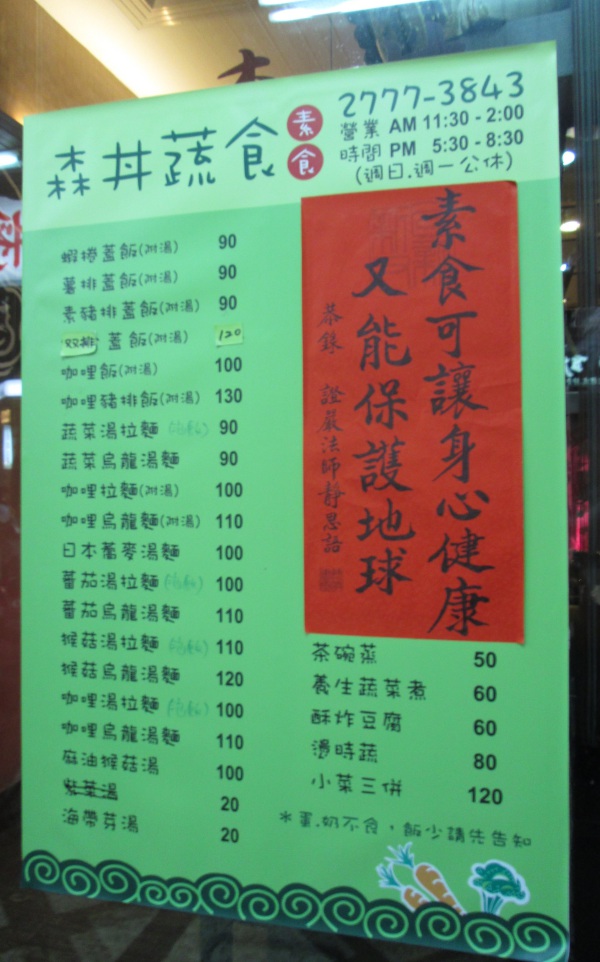 森丼蔬食 素食
2777-3843
營業 AM 11:30 - 2:00
時間 PM 5:30 - 8:30
(週日.週一公休)
蝦捲蓋飯(附湯) 90
薯排蓋飯(附湯) 90
素豬排蓋飯(附湯) 90
双排 蓋飯(附湯) 120
咖哩飯(附湯) 100
咖哩豬排飯(附湯) 130
蔬菜湯拉麵 90
蔬菜烏龍湯麵 90
咖哩拉麵(附湯) 100
咖哩烏龍麵(附湯) 110
日本蕎麥湯麵 100
蕃茄湯拉麵 100
蕃茄烏龍湯麵 110
猴菇湯拉麵 110
猴菇烏龍湯麵 120
咖哩湯拉麵 100
咖哩烏龍湯麵 110
麻油猴菇湯 100
紫菜湯 20
海帶芽湯 20
素食可讓身心健康
又能保護地球
恭錄 證嚴法師靜思語
茶碗蒸 50
養生蔬菜煮 60
酥炸豆腐 60
燙時蔬 80
小菜三併 120
＊蛋.奶不食，飯少請先告知